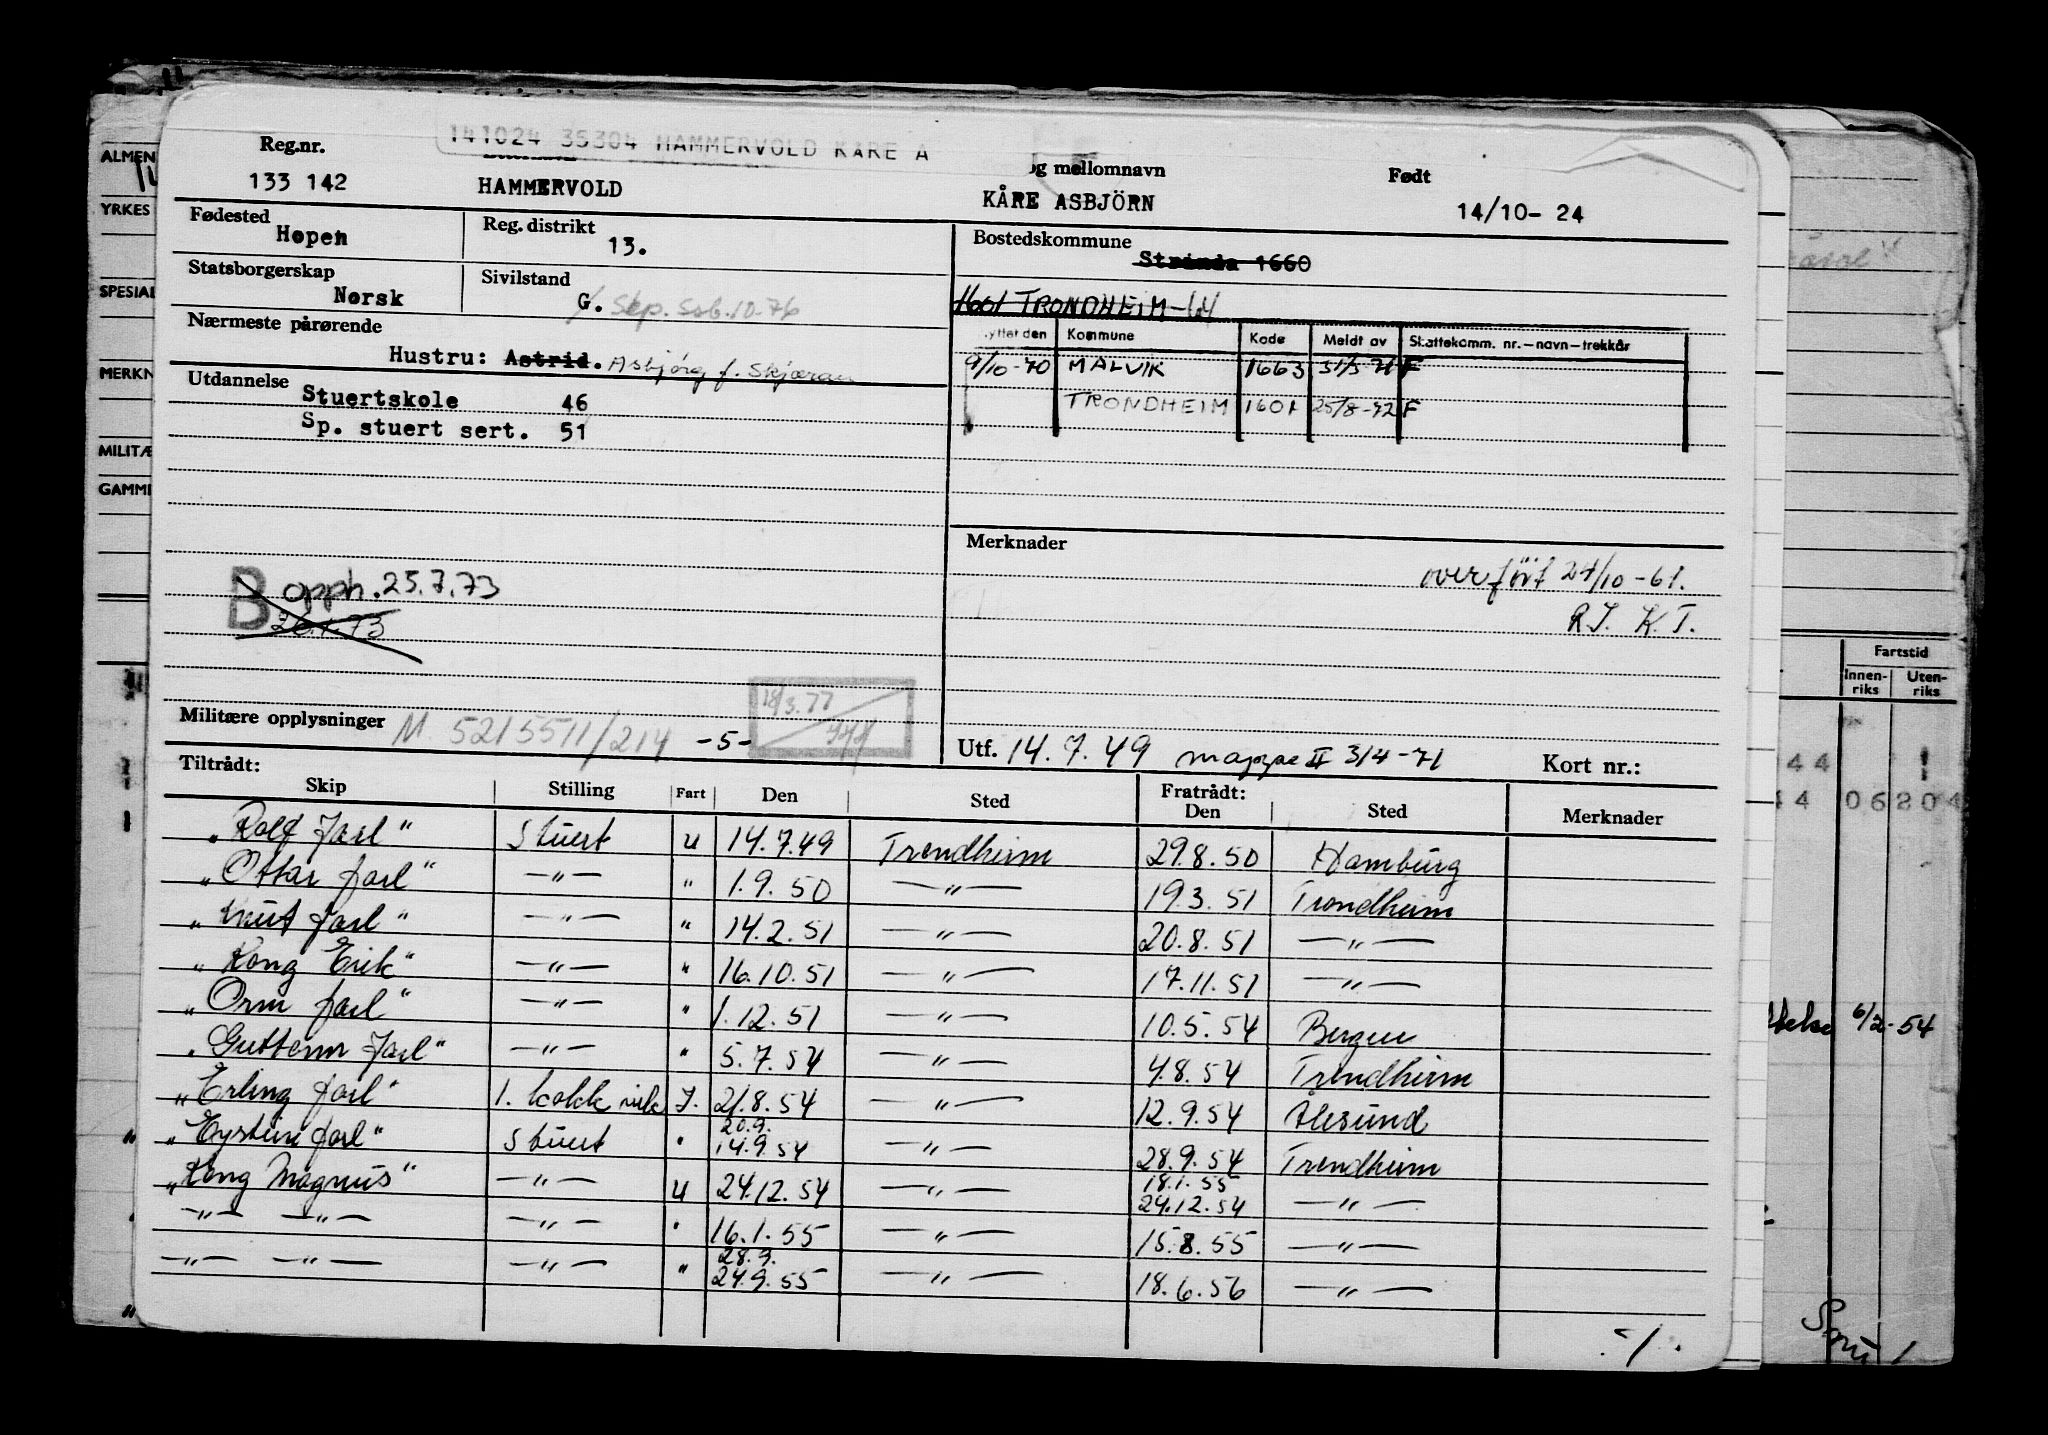 141024 35304 HAMMERVOLD KÅRE A
Reg.nr. og mellomnavn Født
133 142 HAMMERVOLD KÅRE ASBJÖRN 14/10- 24
Fødested Reg. distrikt Bostedskommune
Hopen 13. Strinda 1660
Statsborgerskap Sivilstand
Norsk G. Sep. Ssb. 10-76 1601 TRONDHEIM
Nærmeste pårørende
Hustru: Astrid. Asbjørg f. Skjæran
yttet den Kommune Kode Meldt av Skattekomm. nr.—navn—trekkår
9/10-70 MALVIK 1663 31/3 71 F
TRONDHEIM 1601 25/8-72 F
Utdannelse
Stuertskole 46
Sp. stuert sert. 51
Merknader
overfört 24/10-61.
R.T. K.T.
B opph. 25.7.73
Militære opplysninger M. 5215511/214 -5-
18/3.77
Utf. 14.7.49 mappe II 3/4-71 Kort nr.:
Tiltrådt: Fratrådt:
Skip Stilling Fart Den Sted Den Sted Merknader
"Rolf Jarl" Stuert U 14.7.49 Trondheim 29.8.50 Hamburg
"Ottar Jarl" —"— " 1.9.50 —"— 19.3.51 Trondheim
"Knut Jarl" —"— " 14.2.51 —"— 20.8.51 —"—
"Kong Erik" —"— " 16.10.51 —"— 17.11.51 —"—
"Orm Jarl" —"— " 1.12.51 —"— 10.5.54 Bergen
"Guttorm Jarl" —"— " 5.7.54 —"— 4.8.54 Trondheim
"Erling Jarl" 1. kokk vik J. 21.8.54 —"— 12.9.54 Ålesund
20.9.
"Eystein Jarl" Stuert " 14.9.54 —"— 28.9.54 Trondheim
18.1.55
"Kong Magnus" —"— U 24.12.54 —"— 24.12.54 —"—
—"— —"— —"— " 16.1.55 —"— 15.8.55 —"—
28.9.
—"— —"— —"— " 24.9.55 —"— 18.6.56 —"—
./.
ALMEN
YRKES
SPESIAL
MERKN
MILITÆ
GAMM
Fartstid
Innen-
riks
Uten-
riks
44
44 06 204
6/2-54